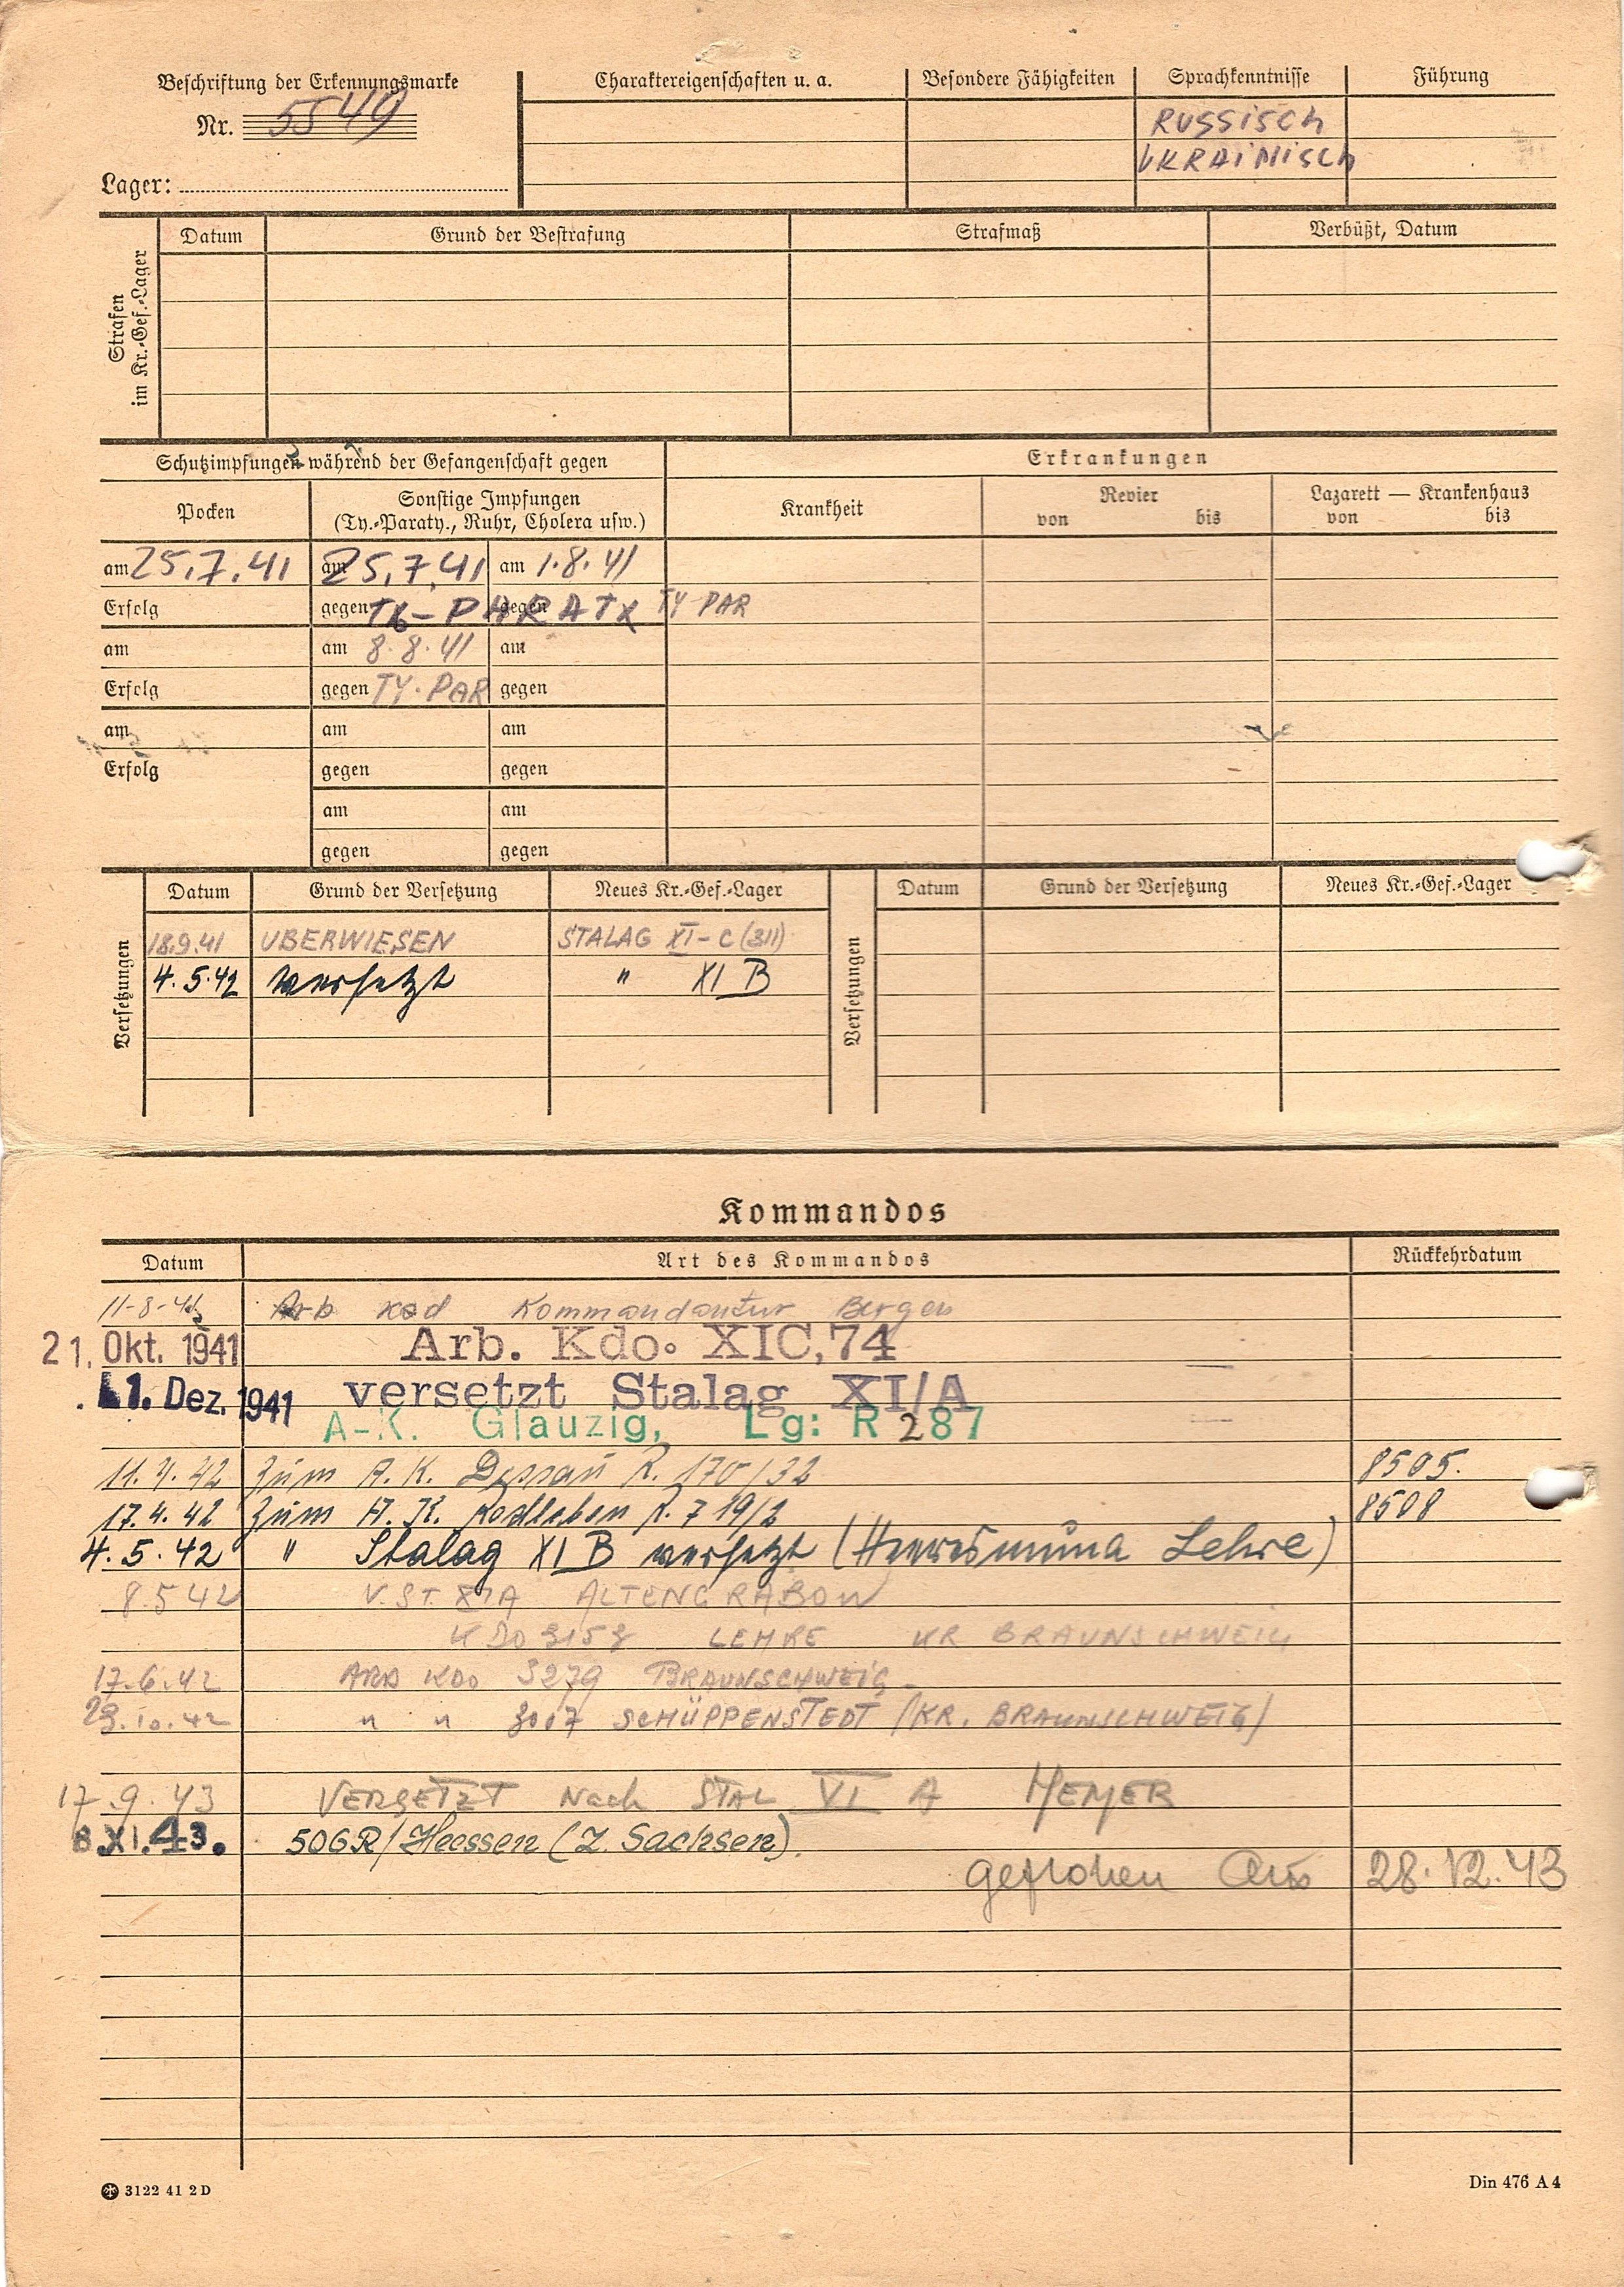 Beschriftung der Erkennungsmarke
Nr. 5549
Lager:
Charaktereigenschaften u. a.
Besondere Fähigkeiten
Sprachkenntnisse
Führung
RUSSISCH
UKRAINISCH
Strafen im Kr.-Gef.-Lager
Datum
Grund der Bestrafung
Strafmaß
Verbüßt, Datum
Schutzimpfungen während der Gefangenschaft gegen
Erkrankungen
Pocken
Sonstige Impfungen
(Ty.-Paraty., Ruhr, Cholera usw.)
Krankheit
Revier
von bis
Lazarett — Krankenhaus
von bis
am 25.7.41 am 25.7.41 am 1.8.41
Erfolg gegen TY-PARATY gegen TY PAR
am am 8.8.41 am
Erfolg gegen TY.PAR gegen
am am am
Erfolg gegen gegen
am am
gegen gegen
Versetzungen
Datum Grund der Versetzung Neues Kr.-Gef.-Lager
18.9.41 UBERWIESEN STALAG XI-C (311)
4.5.42 versetzt " XI B
Versetzungen
Datum Grund der Versetzung Neues Kr.-Gef.-Lager
Kommandos
Datum Art des Kommandos Rückkehrdatum
11-8-41 Arb kod Kommandantur Bergen
21. Okt. 1941 Arb. Kdo. XIC,74
1. Dez. 1941 versetzt Stalag XI/A
A-K. Glauzig, Lg: R 287
11.4.42 zum A.K. Dessau R. 170/32 8505.
17.4.42 zum A.K. Rodleben R. 719/2 8508
4.5.42 " Stalag XI B versetzt (Heeresmuna Lehre)
8.5 42 V. ST. XIA ALTENGRABOW
KDO 3158 LEHRE KR BRAUNSCHWEIG
17.6.42 ARB KDO 3279 BRAUNSCHWEIG
29.10.42 " " 3017 SCHÜPPENSTEDT (KR. BRAUNSCHWEIG)
17.9.43 VERSETZT Nach STAL VI A HEMER
8.XI.43. 506R/Heessen (Z. Sachsen).
geflohen Am 28.12.43
3122 41 2 D
Din 476 A 4